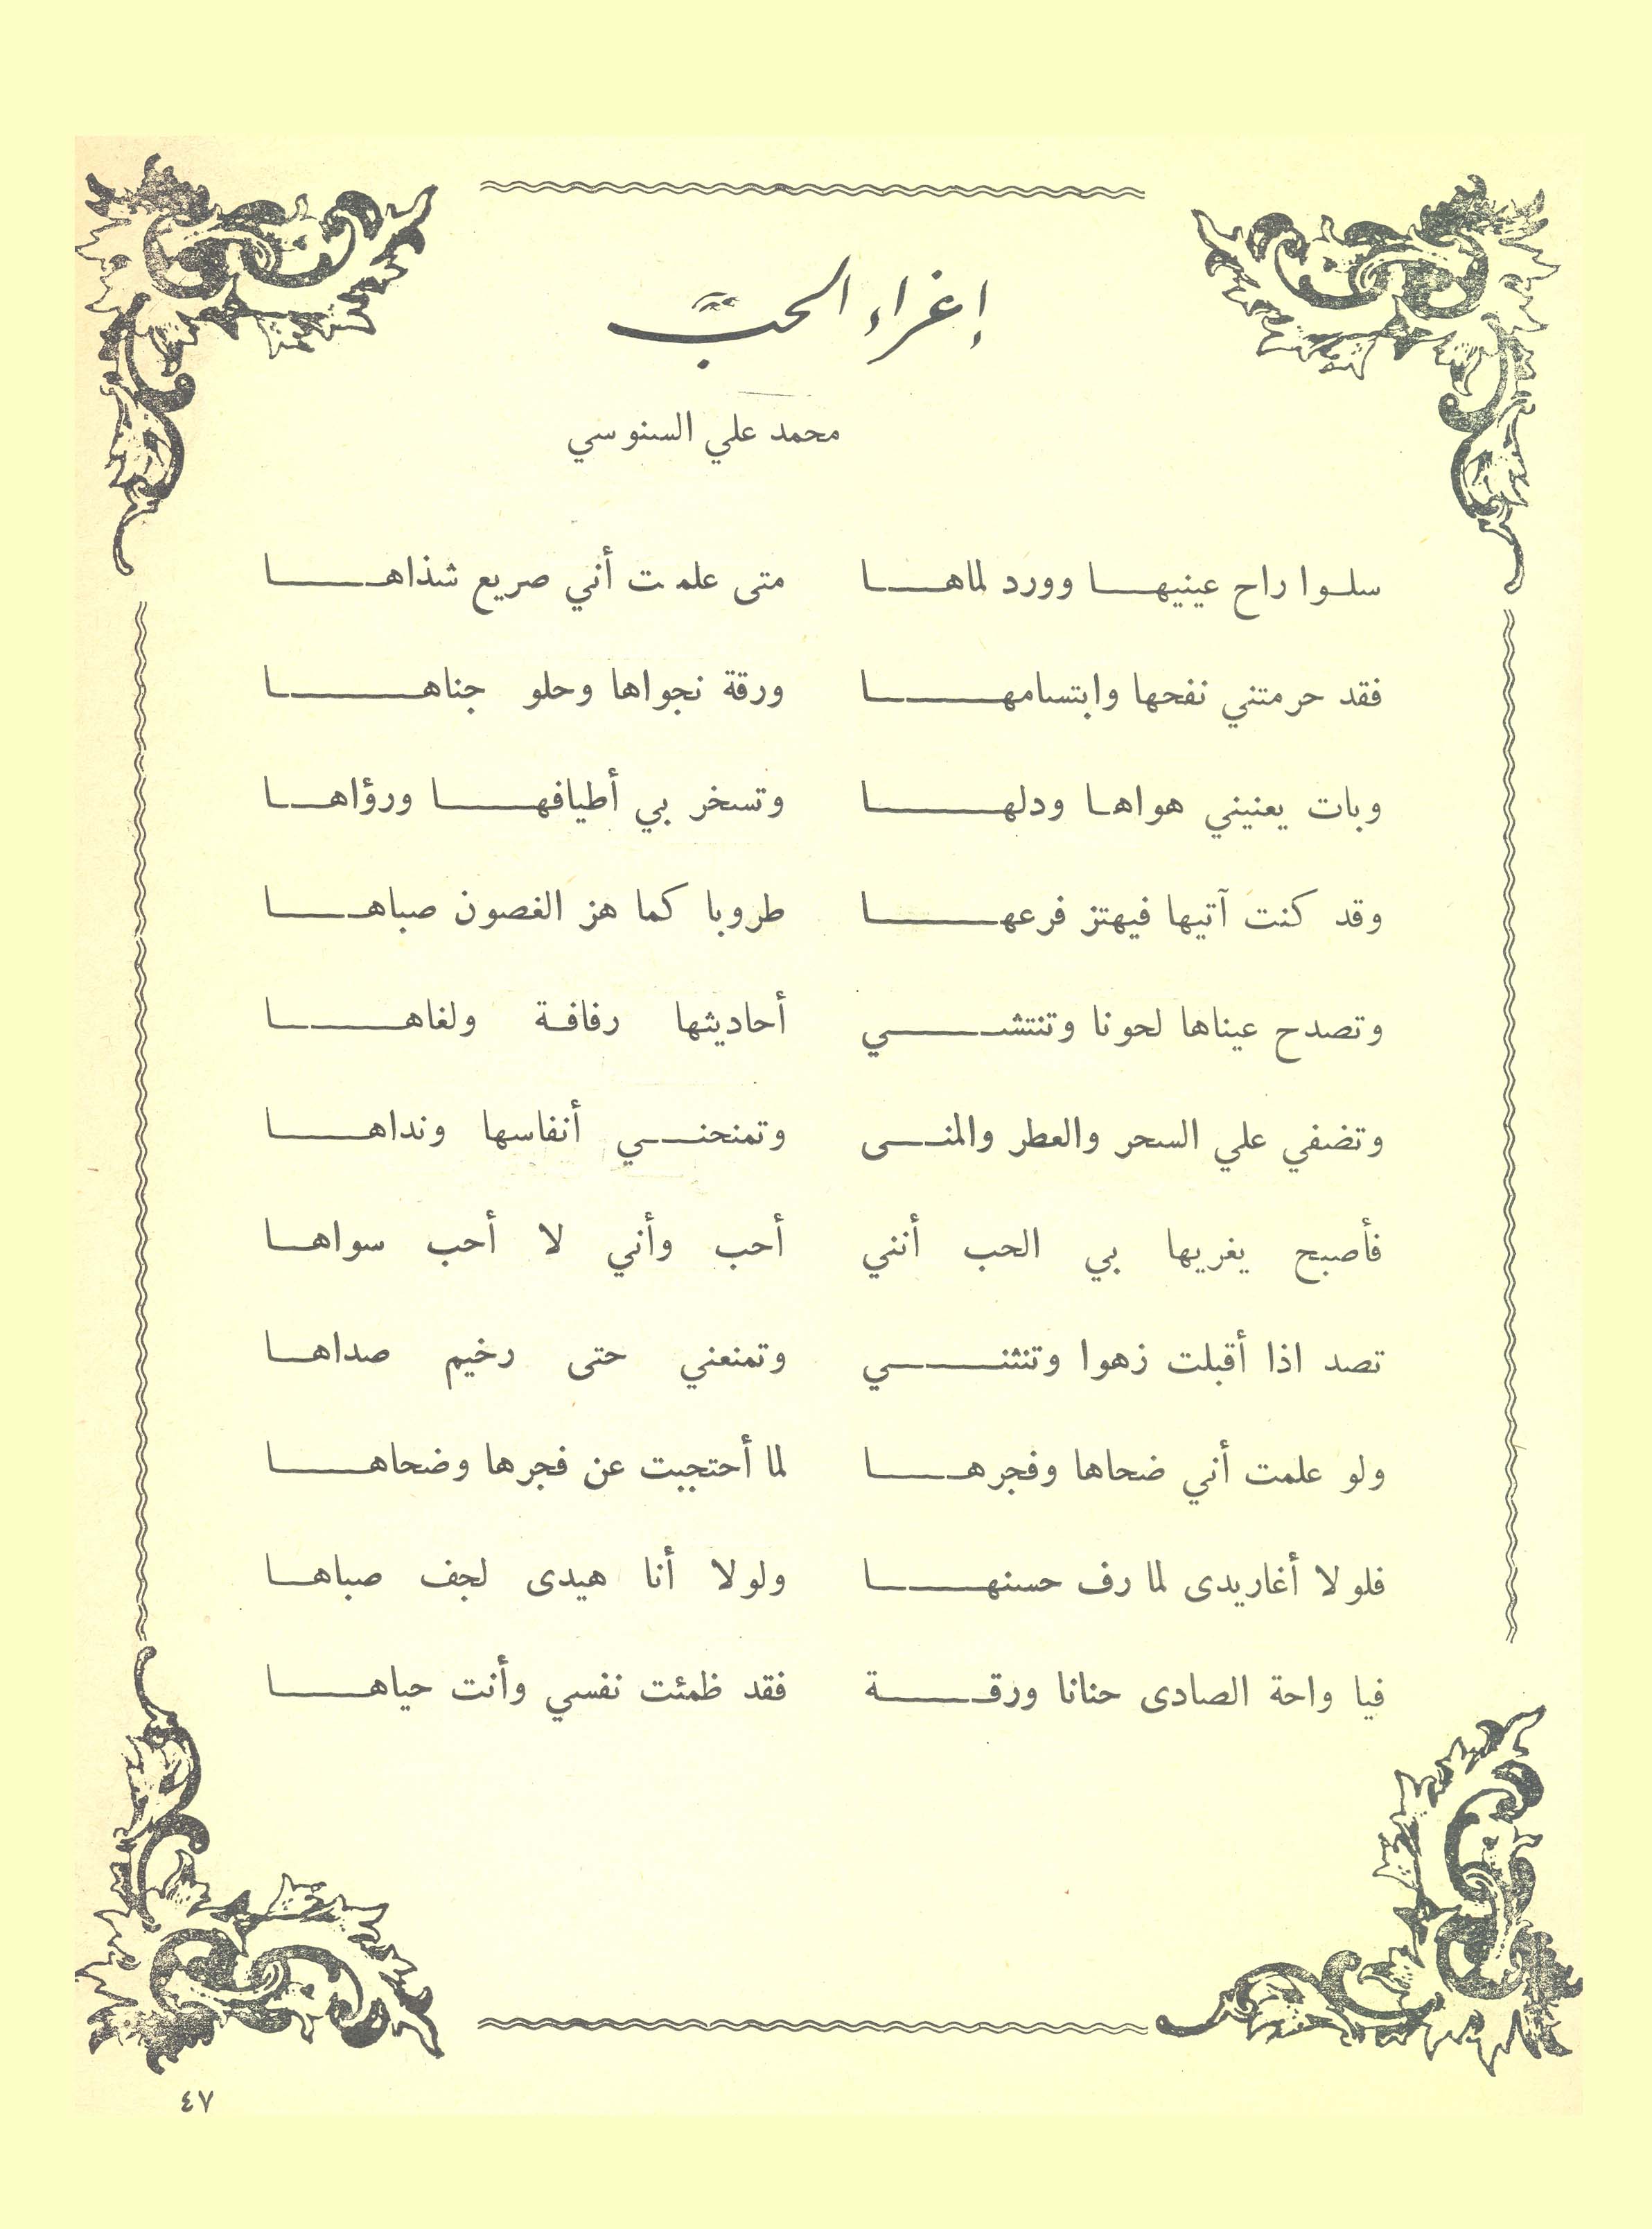 إغراء الحب
محمد علي السنوسي
سلوا راح عينيها وورد لماها متى علمت أني صريع شذاها
فقد حرمتني نفحها وابتسامها ورقة نجواها وحلو جناها
وبات يعنيني هواها ودلها وتسخر بي أطيافها ورؤاها
وقد كنت آتيها فيهتز فرعها طروبا كما هز الغصون صباها
وتصدح عيناها لحونا وتنتشي أحاديثها رفافة ولغاها
وتضفي علي السحر والعطر والمنى وتمنحني أنفاسها ونداها
فأصبح يغريها بي الحب أنني أحب وأني لا أحب سواها
تصد اذا أقبلت زهوا وتنثني وتمنعني حتى رخيم صداها
ولو علمت أني ضحاها وفجرها لما أحتجبت عن فجرها وضحاها
فلولا أغاريدى لما رف حسنها ولولا أنا هيدى لجف صباها
فيا واحة الصادى حنانا ورقة فقد ظمئت نفسي وأنت حياها
٤٧